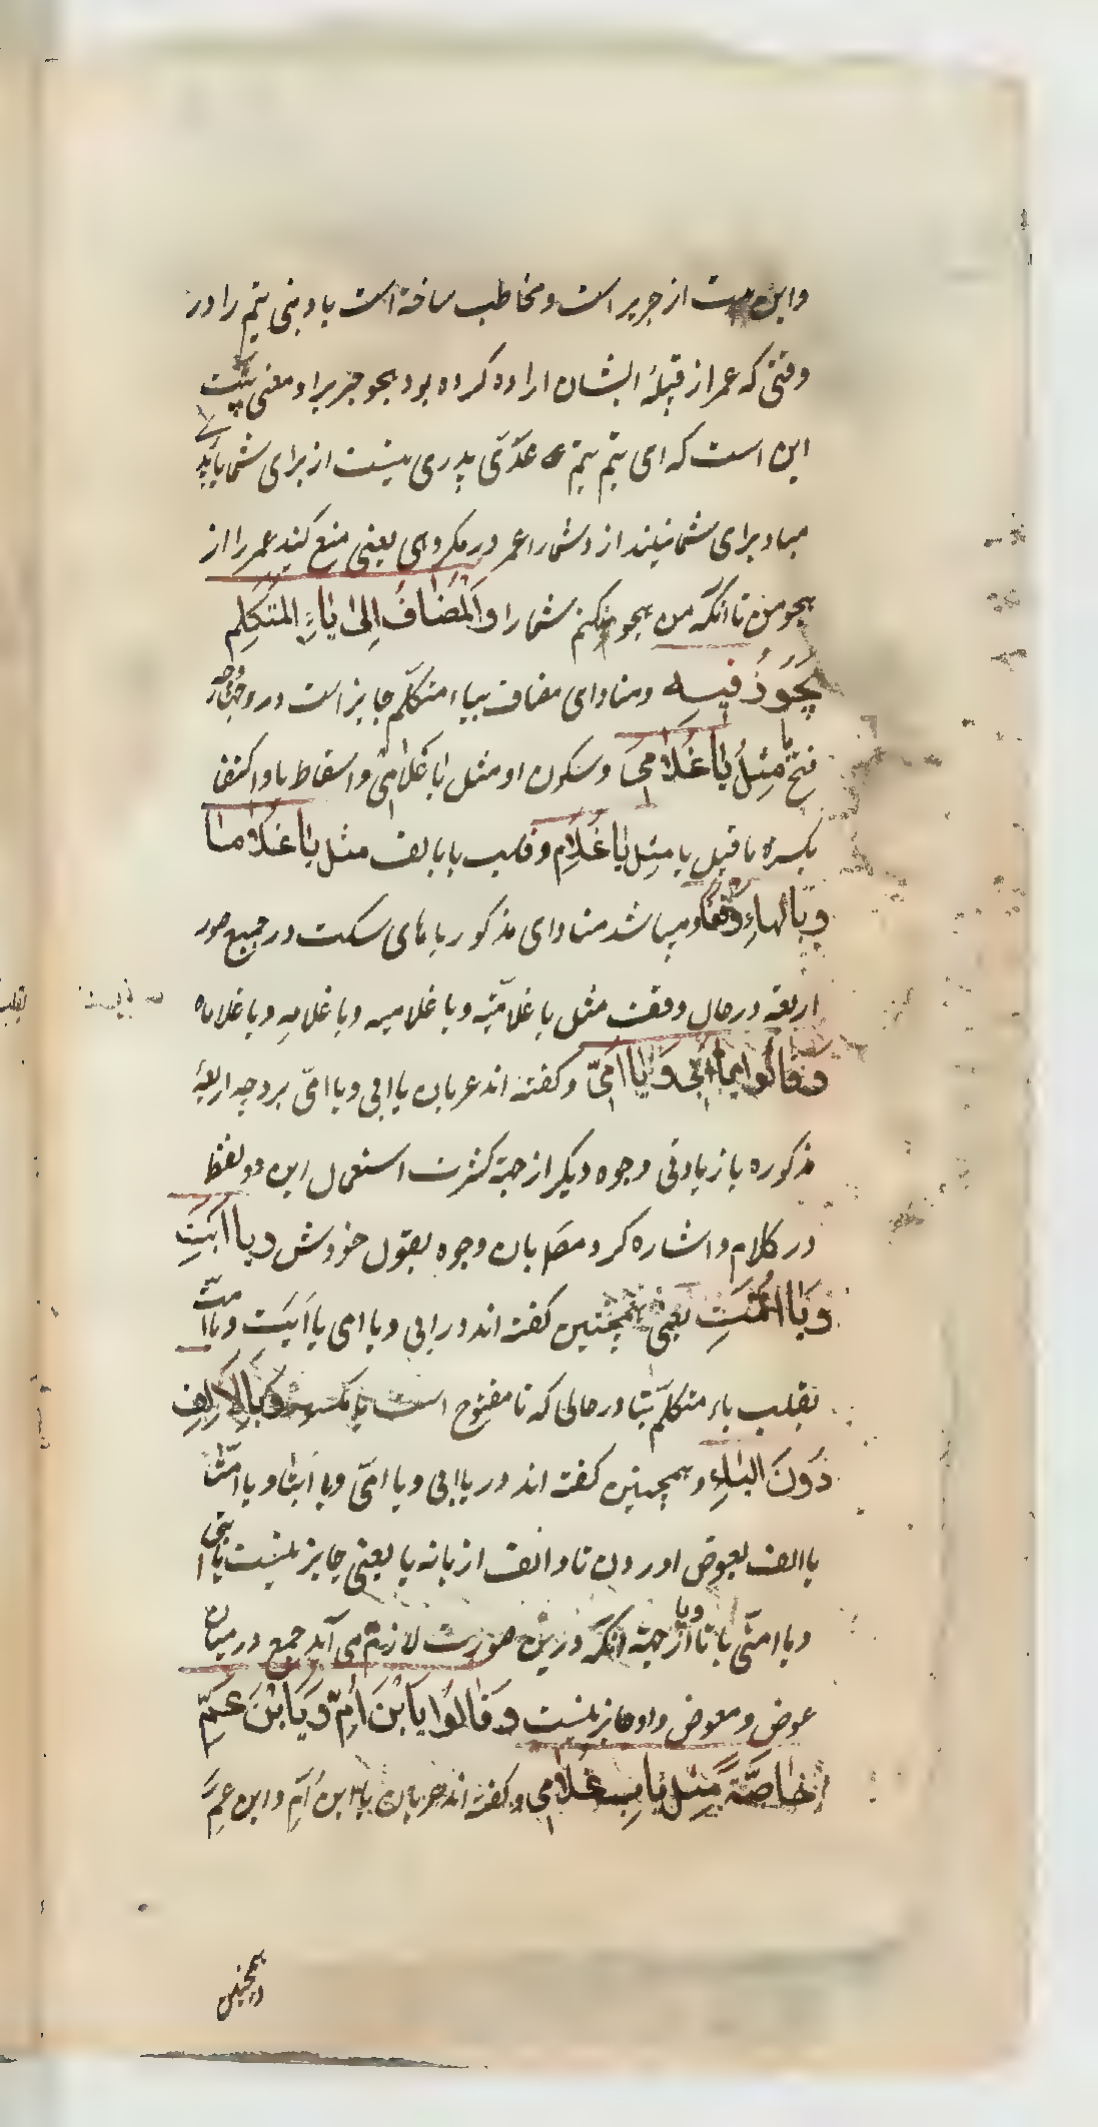 واین بیت از جریر است و مخاطب ساخته است باو بنی تیم را در
وقتی که عمر از قبیلهٔ ایشان اراده کرده بود بهجو جریر را و معنی بیت
این است که ای تیم تیم عدی پدری نیست از برای شما باید
مباد برای شما نیندازد شما را عمر در مکروهی یعنی منع کنید عمر را از
هجو من تا آنکه من هجو نکنم شما را وَالْمُضافُ اِلیٰ یاءِ الْمُتَکَلِّمِ
یَجُوزُ فیهِ و منادای مضاف بیاء متکلّم جایز است در او چهار وجه
فتح یا مِثلُ یا غُلامیَ و سکون او مثل یا غلامیْ و اسقاط یا و اکتفا
بکسره ما قبل یا مثل یا غُلامِ و قلب یا بالف مثل یا غلاما
وَبِالْهاءِ وَقْفًا و میباشد منادای مذکور با های سکت در جمیع صور
اربعه در حال وقف مثل یا غلامیَه و یا غلامیه و یا غلامِه و یا غلاماه
وَقالُوا یا اَبی وَیا اُمّی و گفته اند عربان یا ابی و یا امّی بر وجه اربعهٔ
مذکوره با زیادتی وجوه دیگر از جهة کثرت استعمال این دو لفظ
در کلام و اشاره کرد مصَ بان وجوه بقول خودش وَیا اَبَتِ
وَیا اُمَّتِ یعنی همچنین گفته اند در ابی و یا امی یا اَبَتِ و یا امّت
بقلب یاء متکلّم بتا در حالی که تا مفتوح است یا مکسور وَبِالْاَلِفِ
دُونَ الْیاءِ و همچنین گفته اند در یا ابی و یا امّی و یا ابتا و یا امّتا
با الف بعوض اوردن تا و الف از یا نه یا یعنی جایز نیست یا ابتی
و یا امتّی با تا و یا از جهة آنکه درین صورت لازم می آید جمع در میان
عوض و معوض و او جایز نیست وَقالُوا یَا ابْنَ اُمَّ وَیَا ابْنَ عَمَّ
خاصَّةً مِثلَ یابِ غُلامی و گفته اند عربان یا ابن اُمّ و ابن عمَّ
همچنین